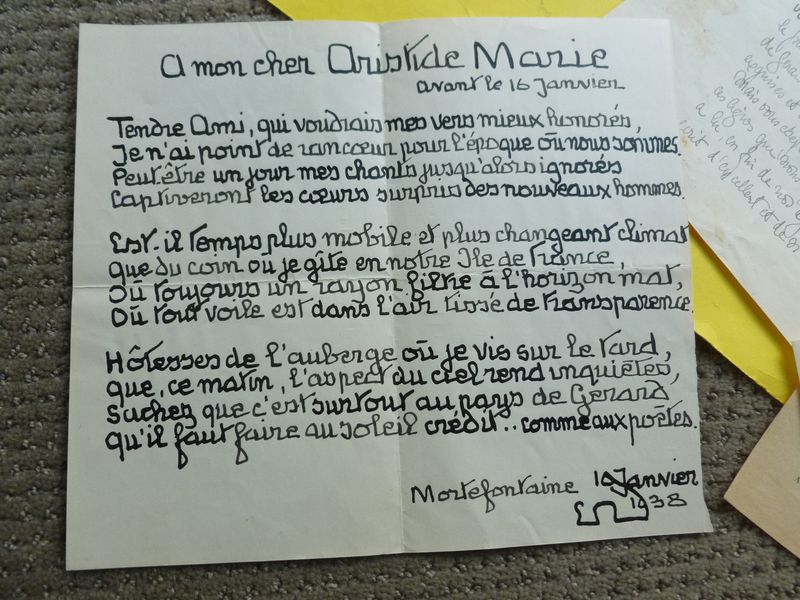 A mon cher Aristide Marie
avant le 16 Janvier
Tendre Ami, qui voudrais mes vers mieux honorés,
Je n'ai point de rancœur pour l'époque où nous sommes.
Peut être un jour mes chants jusqu'alors ignorés
Captiveront les cœurs surpris des nouveaux hommes.
Est-il temps plus mobile et plus changeant climat
que du coin où je gîte en notre Ile de France,
Où toujours un rayon filtre à l'horizon mat,
Où tout voile est dans l'air tissé de transparence.
Hôtesses de l'auberge où je vis sur le tard,
que, ce matin, l'aspect du ciel rend inquiètes,
Sachez que c'est surtout au pays de Gerard
qu'il faut faire au soleil crédit.. comme aux poètes.
Mortefontaine 16 Janvier
1938